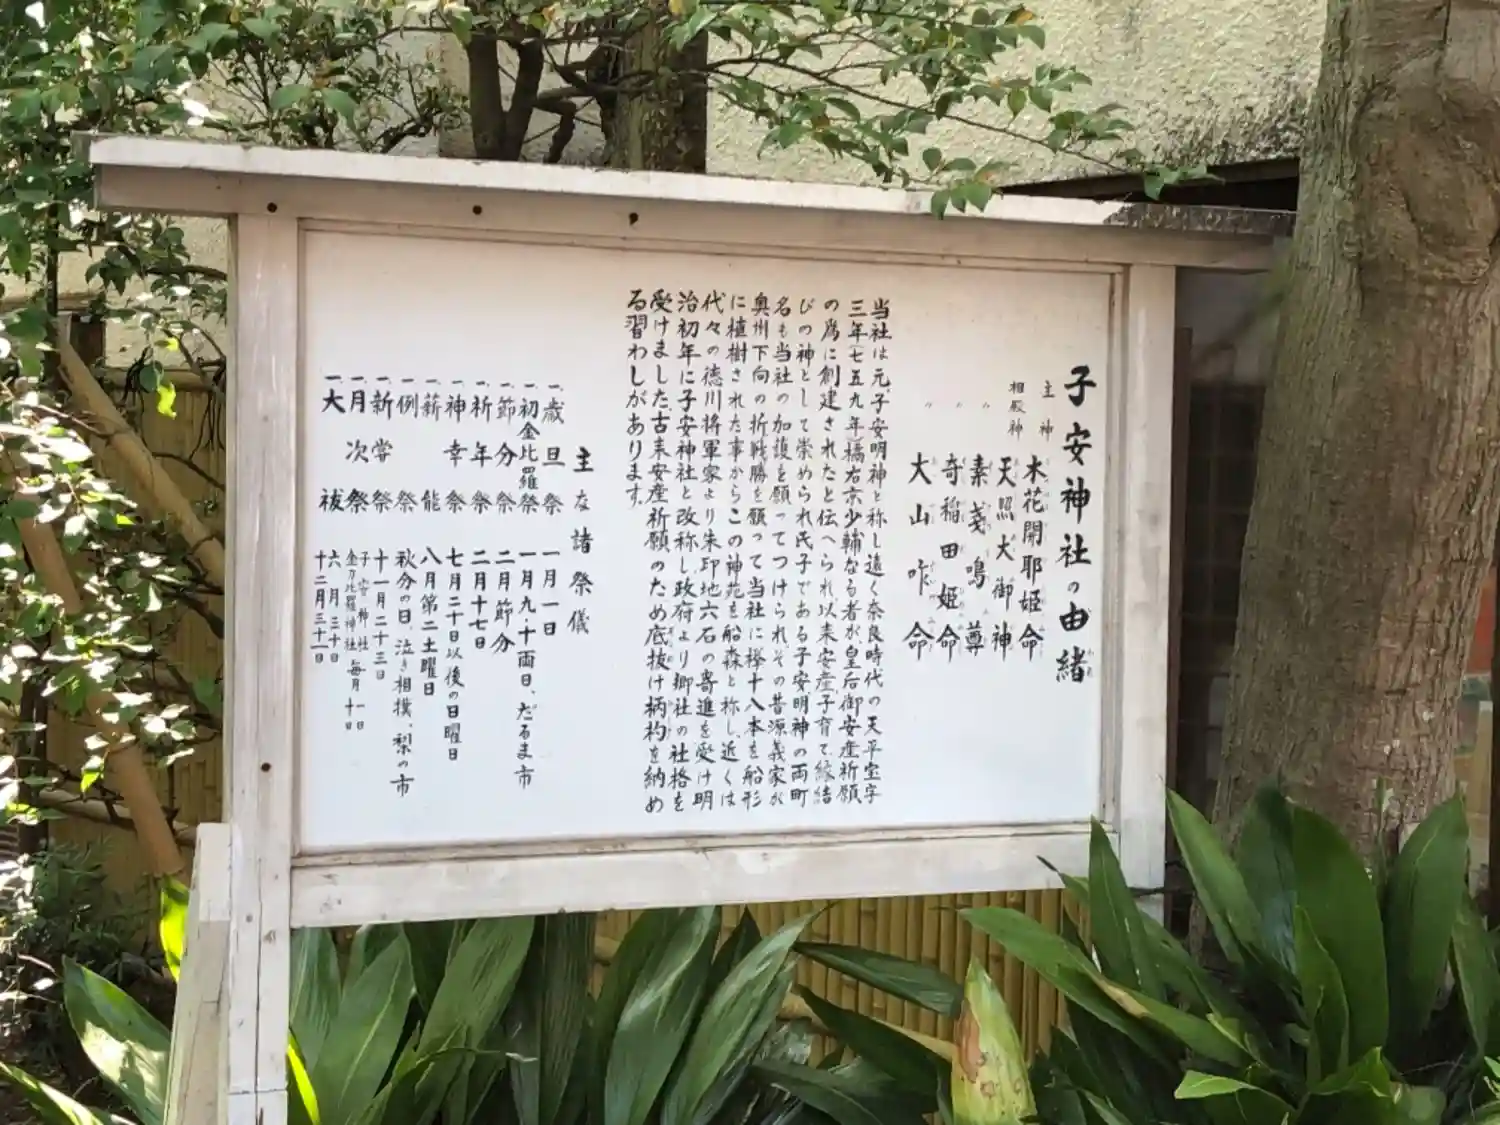 子安神社の由緒
主神 木花開耶姫命
相殿神 天照大御神
〃 素戔鳴尊
〃 奇稲田姫命
〃 大山咋命
当社は元、子安明神と称し遠く奈良時代の天平宝字
三年(七五九年)橘右京少輔なる者が皇后御安産祈願
の為に創建されたと伝へられ以来安産子育て、縁結
びの神として崇められ氏子である子安明神の両町
名も当社の加護を願ってつけられ、その昔源義家が
奥州下向の折戦勝を願って当社に欅十八本を船形
に植樹された事からこの神苑を船森と称し、近くは
代々の徳川将軍家より朱印地六石の寄進を受け明
治初年に子安神社と改称し政府より郷社の社格を
受けました、古来安産祈願のため底抜け柄杓を納め
る習わしがあります。
主な諸祭儀
一、歳旦祭 一月一日
一、初金比羅祭 一月九・十両日、だるま市
一、節分祭 二月節分
一、祈年祭 二月十七日
一、神幸祭 七月二十日以後の日曜日
一、薪能 八月第二土曜日
一、例祭 秋分の日、泣き相撲、梨の市
一、新嘗祭 十一月二十三日
一、月次祭 子安神社 毎月一日
金刀比羅神社 十日
一、大祓 六月三十日
十二月三十一日